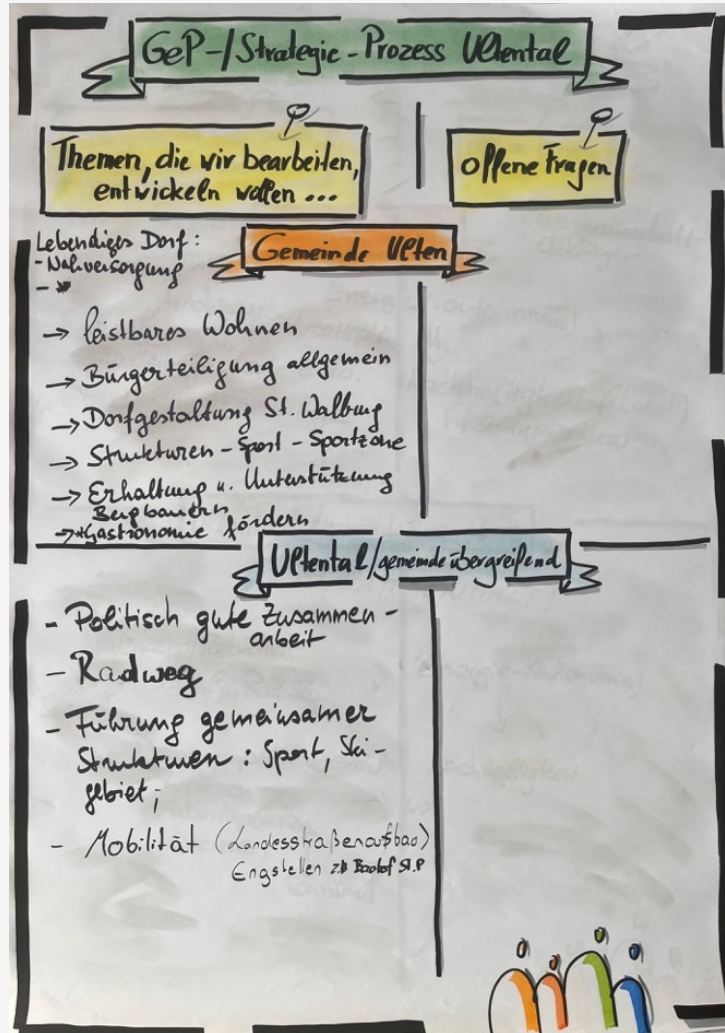 GeP-/Strategie-Prozess Ultental
Themen, die wir bearbeiten,
entwickeln wollen ...
offene Fragen
Gemeinde Ulten
Lebendiges Dorf:
- Nahversorgung
-
→ leistbares Wohnen
→ Bürgerteiligung allgemein
→ Dorfgestaltung St. Walburg
→ Strukturen - Sport - Sportzone
→ Erhaltung u. Unterstützung
Bergbauern
→ Gastronomie fördern
Ultental/gemeindeübergreifend
- Politisch gute Zusammen-
arbeit
- Radweg
- Führung gemeinsamer
Strukturen: Sport, Ski-
gebiet;
- Mobilität (Landesstraßenausbau)
Engstellen z.B St.P